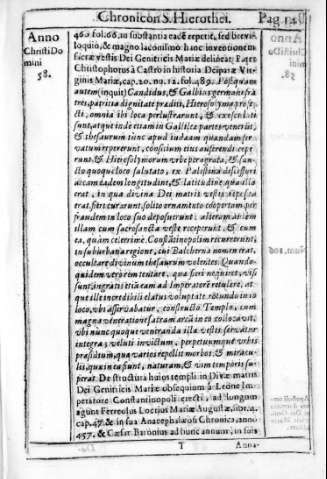 Chronicon S. Hierothei. Pag. 145
Anno
Christi Do
mini
58.
460. fol. 66. in substantia eadē repetit, sed brevi
loquio, & magno laconismo hanc inventionem
sictæ vestis Dei Genitricis Mariæ delibeat; Pater
Christophorus à Castro in historia Deiparæ Vir
ginis Mariæ, cap. 20. nu. 12. fol. 489. Postquam
autem (inquit) Candidus, & Galbius germani fra
tres, patritia dignitate præditi, Hierosolyma profe
cti, omnia ibi loca perlustrarunt, & exosculati
sunt, atque inde etiam in Galilææ partes venerūt,
& thesaurum tunc apud iudæam quandam ser-
vatum repererunt, consilium eius auferendi cepe
runt. & Hierosolymorum urbe peragrata, & san-
ctoquoque loco salutato, ex Palæstina discessuri
arcam eadem longitudine, & latitudine qua illa
erat, in qua divina Dei matris vestis reposita
erat, fieri curarunt, solito ornamento coopertam per
fraudem in loco suo deposuerunt: alteram autem
illam cum sacrosancta veste receperunt, & cum
ea, quàm citissimè, Constātinopolim recurrerunt,
in suburbana regione, cui Balcherna nomen erat,
occultare divinum thesaurum volentes. Quando-
quidem verò rem tentare, quæ fieri nequiret, visi
sunt, ingratis etiā eam ad Imperatorē retulere, at
que ille incredibili elatus voluptate rotundo in so
loco, ubi asservabatur, constructo Templo, cum
magna veneratione sacram arcā in eo collocavit,
ubi nunc quoque veneranda illa vestis servātur
integra, veluti invictum, perpetuumque urbis
præsidium, quæ varios repellit morbos, & miracu-
lis, quæ in ea fiunt, naturam, & vim temporis su-
perat. De structura huius templi in Divæ matris
Dei Genitricis Mariæ obsequium à Leone Im-
peratore Constantinopoli erecti, ad longum
agunt Ferreolus Locrius Mariæ Augustæ, libr. 4.
cap. 47. & in sua Anacephalæosi Chronica, anno
457. & Cæsar Baronius ad hunc annum, in suis
T Anna-